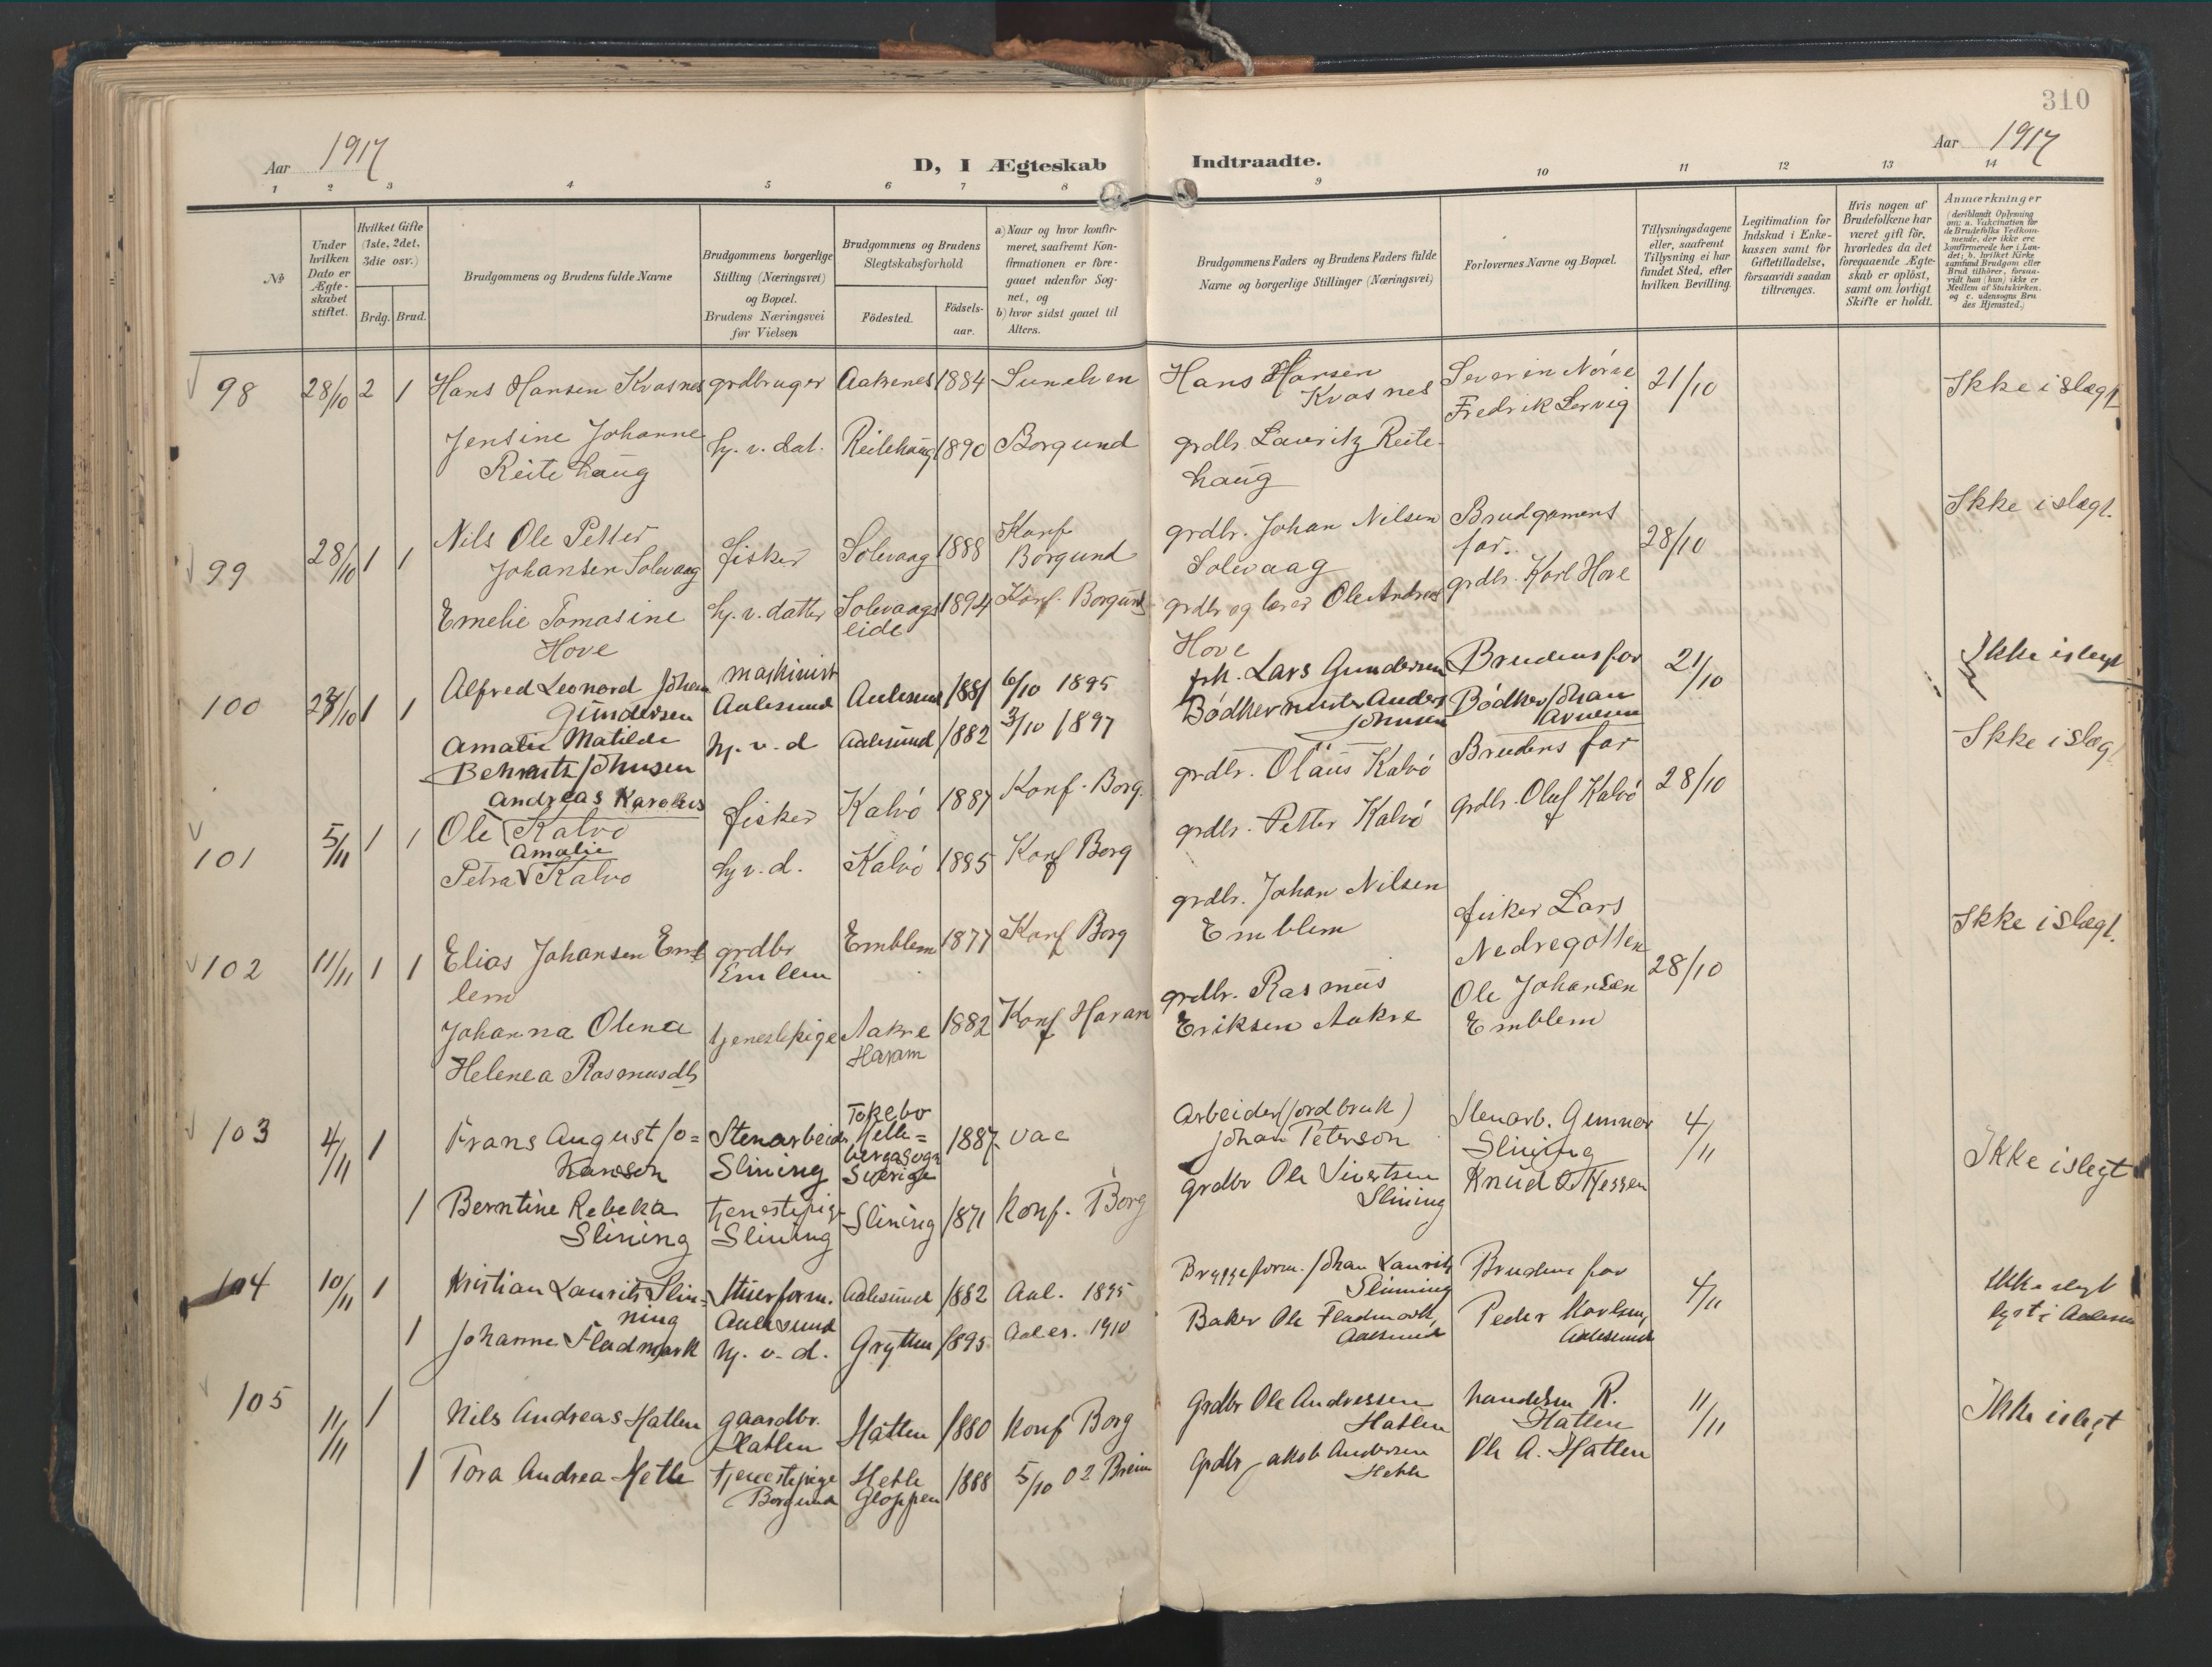 310
Aar 1917
D, I Ægteskab Indtraadte.
Aar 1917
1 2 3 4 5 6 7 8 9 10 11 12 13 14
№
Under hvilken Dato er Ægte-skabet stiftet.
Hvilket Gifte (1ste, 2det, 3die osv.)
Brdg. Brud.
Brudgommens og Brudens fulde Navne
Brudgommens borgerlige Stilling (Næringsvei) og Bopæl. Brudens Næringsvei før Vielsen
Brudgommens og Brudens Slegtskabsforhold
Födested. Födsels-aar.
a) Naar og hvor konfirmeret, saafremt Konfirmationen er foregaaet udenfor Sognet, og
b) hvor sidst gaaet til Alters.
Brudgommens Faders og Brudens Faders fulde Navne og borgerlige Stillinger (Næringsvei)
Forlovernes Navne og Bopæl.
Tillysningsdagene eller, saafremt Tillysning ei har fundet Sted, efter hvilken Bevilling.
Legitimation for Indskud i Enkekassen samt for Giftetilladelse, forsaavidt saadan tiltrænges.
Hvis nogen af Brudefolkene har været gift för, hvorledes da det foregaaende Ægteskab er oplöst, samt om lovligt Skifte er holdt.
Anmærkninger
(deriblandt Oplysning om: a. Vakcination for de Brudefolks Vedkommende, der ikke ere konfirmerede her i Landet; b. hvilket Kirkesamfund Brudgom eller Brud tilhörer, forsaavidt han (hun) ikke er Medlem af Statskirken, og c. udensogns Brudes Hjemsted.)
98 28/10 2 1 Hans Hansen Kvasnes grdbruger Aaknes 1884 Sunelven Hans Hansen Kvasnes Severin Nörve Fredrik Lervig 21/10 Ikke i slægt
Jensine Johanne Reitehaug hj. v. dat. Reitehaug 1890 Borgund grdbr. Lauritz Reitehaug
99 28/10 1 1 Nils Ole Petter Johansen Solevaag fisker Solevaag 1888 Konf Borgund grdbr. Johan Nilsen Solevaag Brudgomens far. 28/10 Ikke i slægt.
Emelie Tomasine Hove hj. v. datter Solevaagseide 1894 Konf. Borgund grdbr og lærer Ole Andreas Hove grdbr. Karl Hove
100 28/10 1 1 Alfred Leonard Johan Gundersen maskinist Aalesund Aalesund 1881 6/10 1895 Lars Gundersen Brudens far 21/10 Ikke i slegt
Amalie Matilde Johnsen hj. v. d Aalesund 1882 3/10 1897 Bødkermester Anders Johnsen Bødker Johan Arnesen
101 5/11 1 1 Andreas Karolius Ole Kalvö fisker Kalvö 1887 Konf. Borg. grdbr. Olaus Kalvö Brudens far 28/10 Ikke i slægt
Petra Amalie Kalvö hj v. d. Kalvö 1885 Konf Borg grdbr. Petter Kalvö grdbr. Oluf Kalvö
102 11/11 1 1 Elias Johansen Emblem grdbr Emlem Emblem 1877 Konf Borg grdbr. Johan Nilsen Emblem fisker Lars Nedregotten 28/10 Ikke i slægt.
Johanna Olena Helenea Rasmusdtr tjenestepige Aakre Haram 1882 Konf Haram grdbr. Rasmus Eriksen Aakre Ole Johansen Emblem
103 4/11 1 Frans August Johanson Stenarbeider Slining Tokebo Sverige 1887 vac Arbeider (jordbruk) Johan Peterson Stenarb. Gunnar Slining 4/11 Ikke i slegt
1 Berntine Rebeka Slining Tjenestepige Slining Slining 1871 Konf. Borg grdbr Ole Sivertsen Slining Knud
104 10/11 1 Kristian Laurits Slinning Aalesund Aalesund 1882 Aal. 1895 Bryggeform. Johan Laurits Slinning Brudens far 4/11 Ikke slegt lyst i Aalesund
1 Johanne Fladmark hj. v. d. Grytten 1895 Aales. 1910 Baker Ole Fladmark, Aalesund Peder Karlsen, Aalesund
105 11/11 1 Nils Andreas Hatlen gaardbr. Hatlen Hatlen 1880 Konf Borg Grdbr Ole Andressen Hatlen handelsm R. Hatlen 11/11 Ikke i slegt
1 Tora Andrea Hetle tjenestepige Borgund Hetle Gloppen 1888 5/10 02 Breim Grdbr Jakob Andersen Hetle Ole A. Hatlen